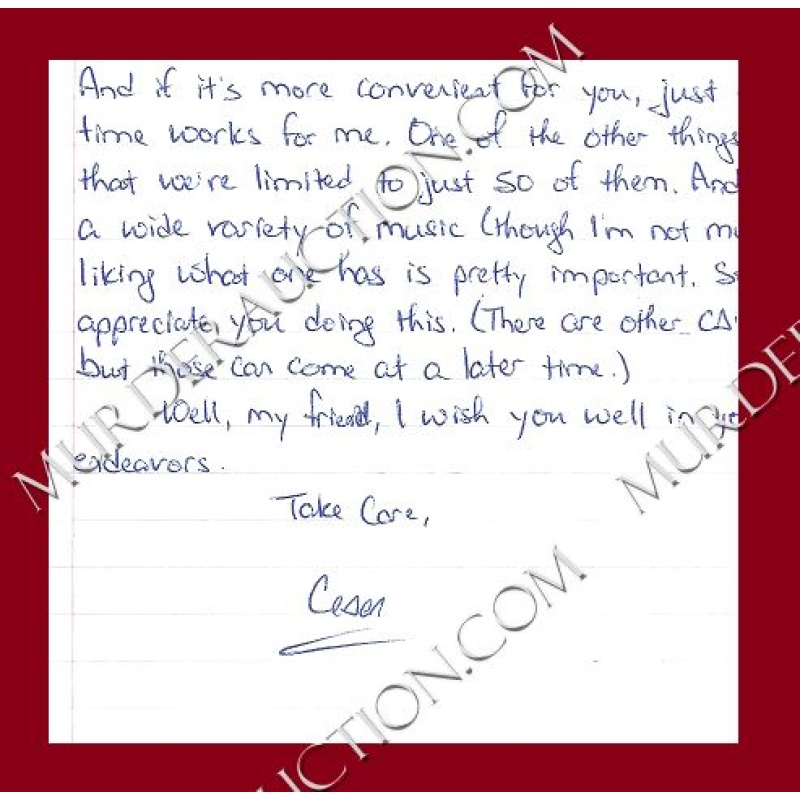 And if it's more convenient for you, just
time works for me. One of the other things
that we're limited to just 50 of them. And
a wide variety of music (though I'm not
liking what one has is pretty important.
appreciate you doing this. (There are other CD'
but those can come at a later time.)
Well, my friend, I wish you well in
endeavors.
Take Care,
Cesar
MURDERAUCTION.COM
MURDER
UCTION.COM